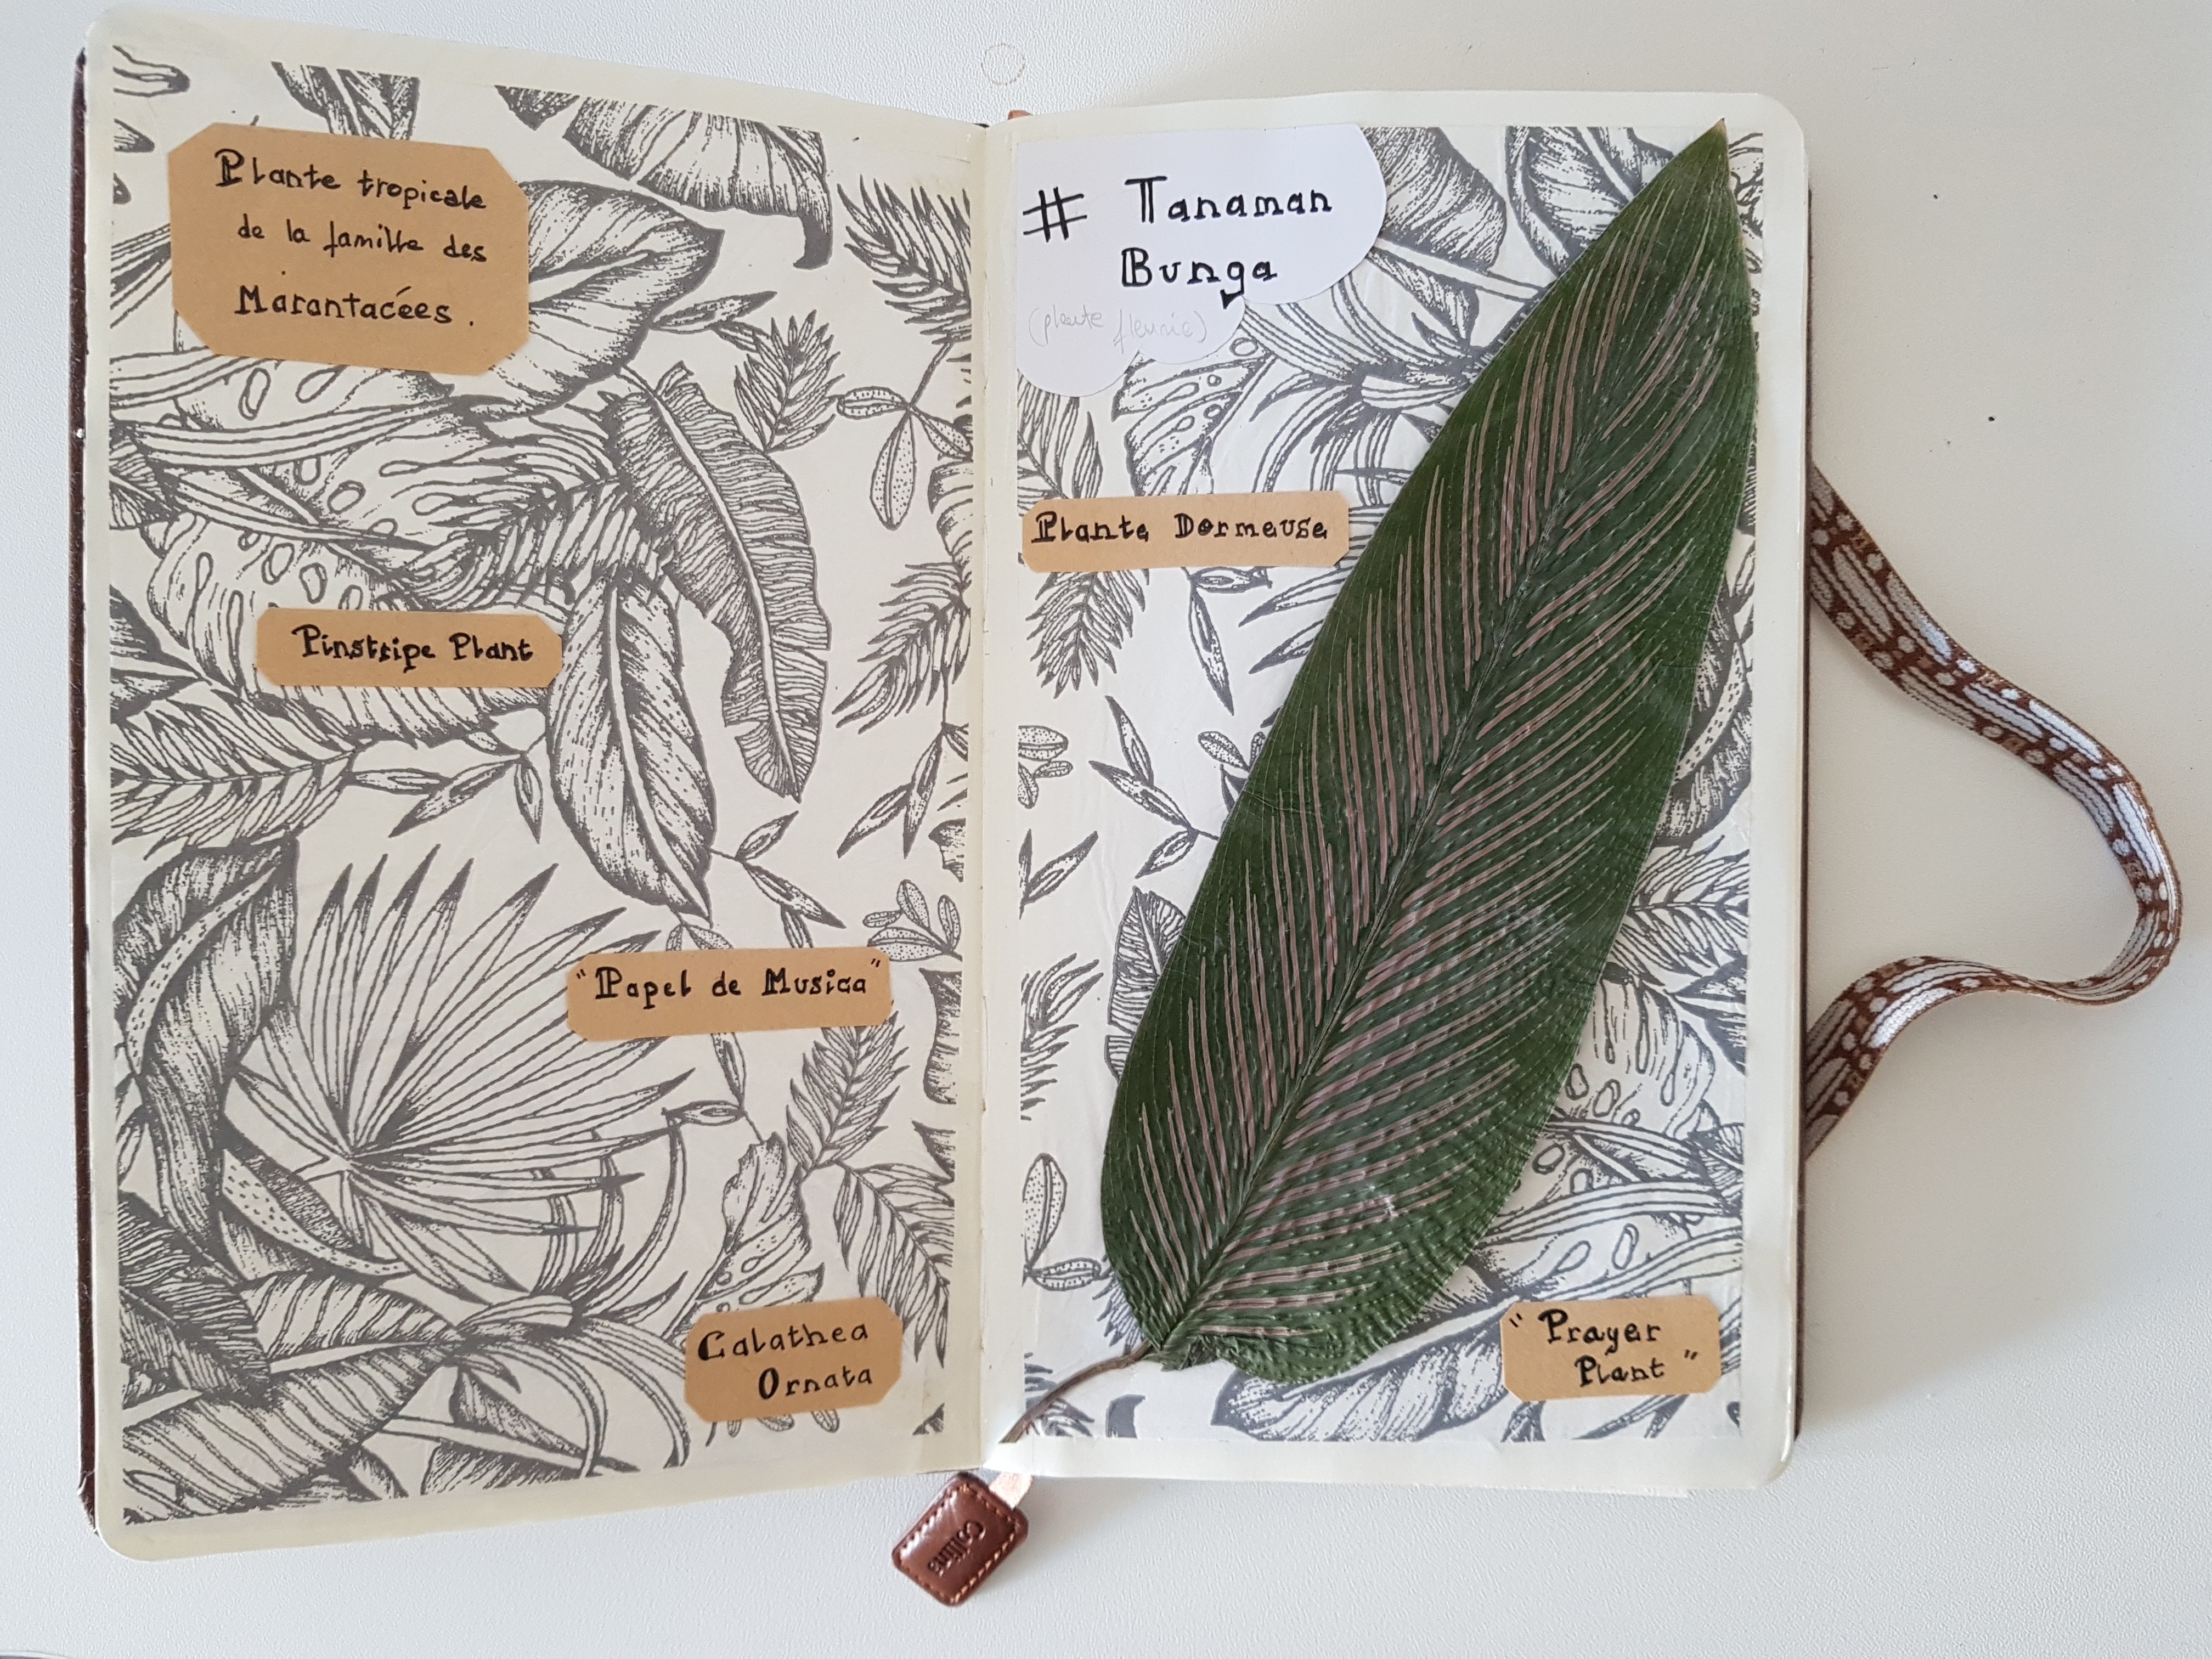 Plante tropicale
de la famille des
Marantacées.
Pinstripe Plant
"Papel de Musica"
Calathea
Ornata
# Tanaman
Bunga
(plante fleurie)
Plante Dormeuse
"Prayer
Plant"
Collins